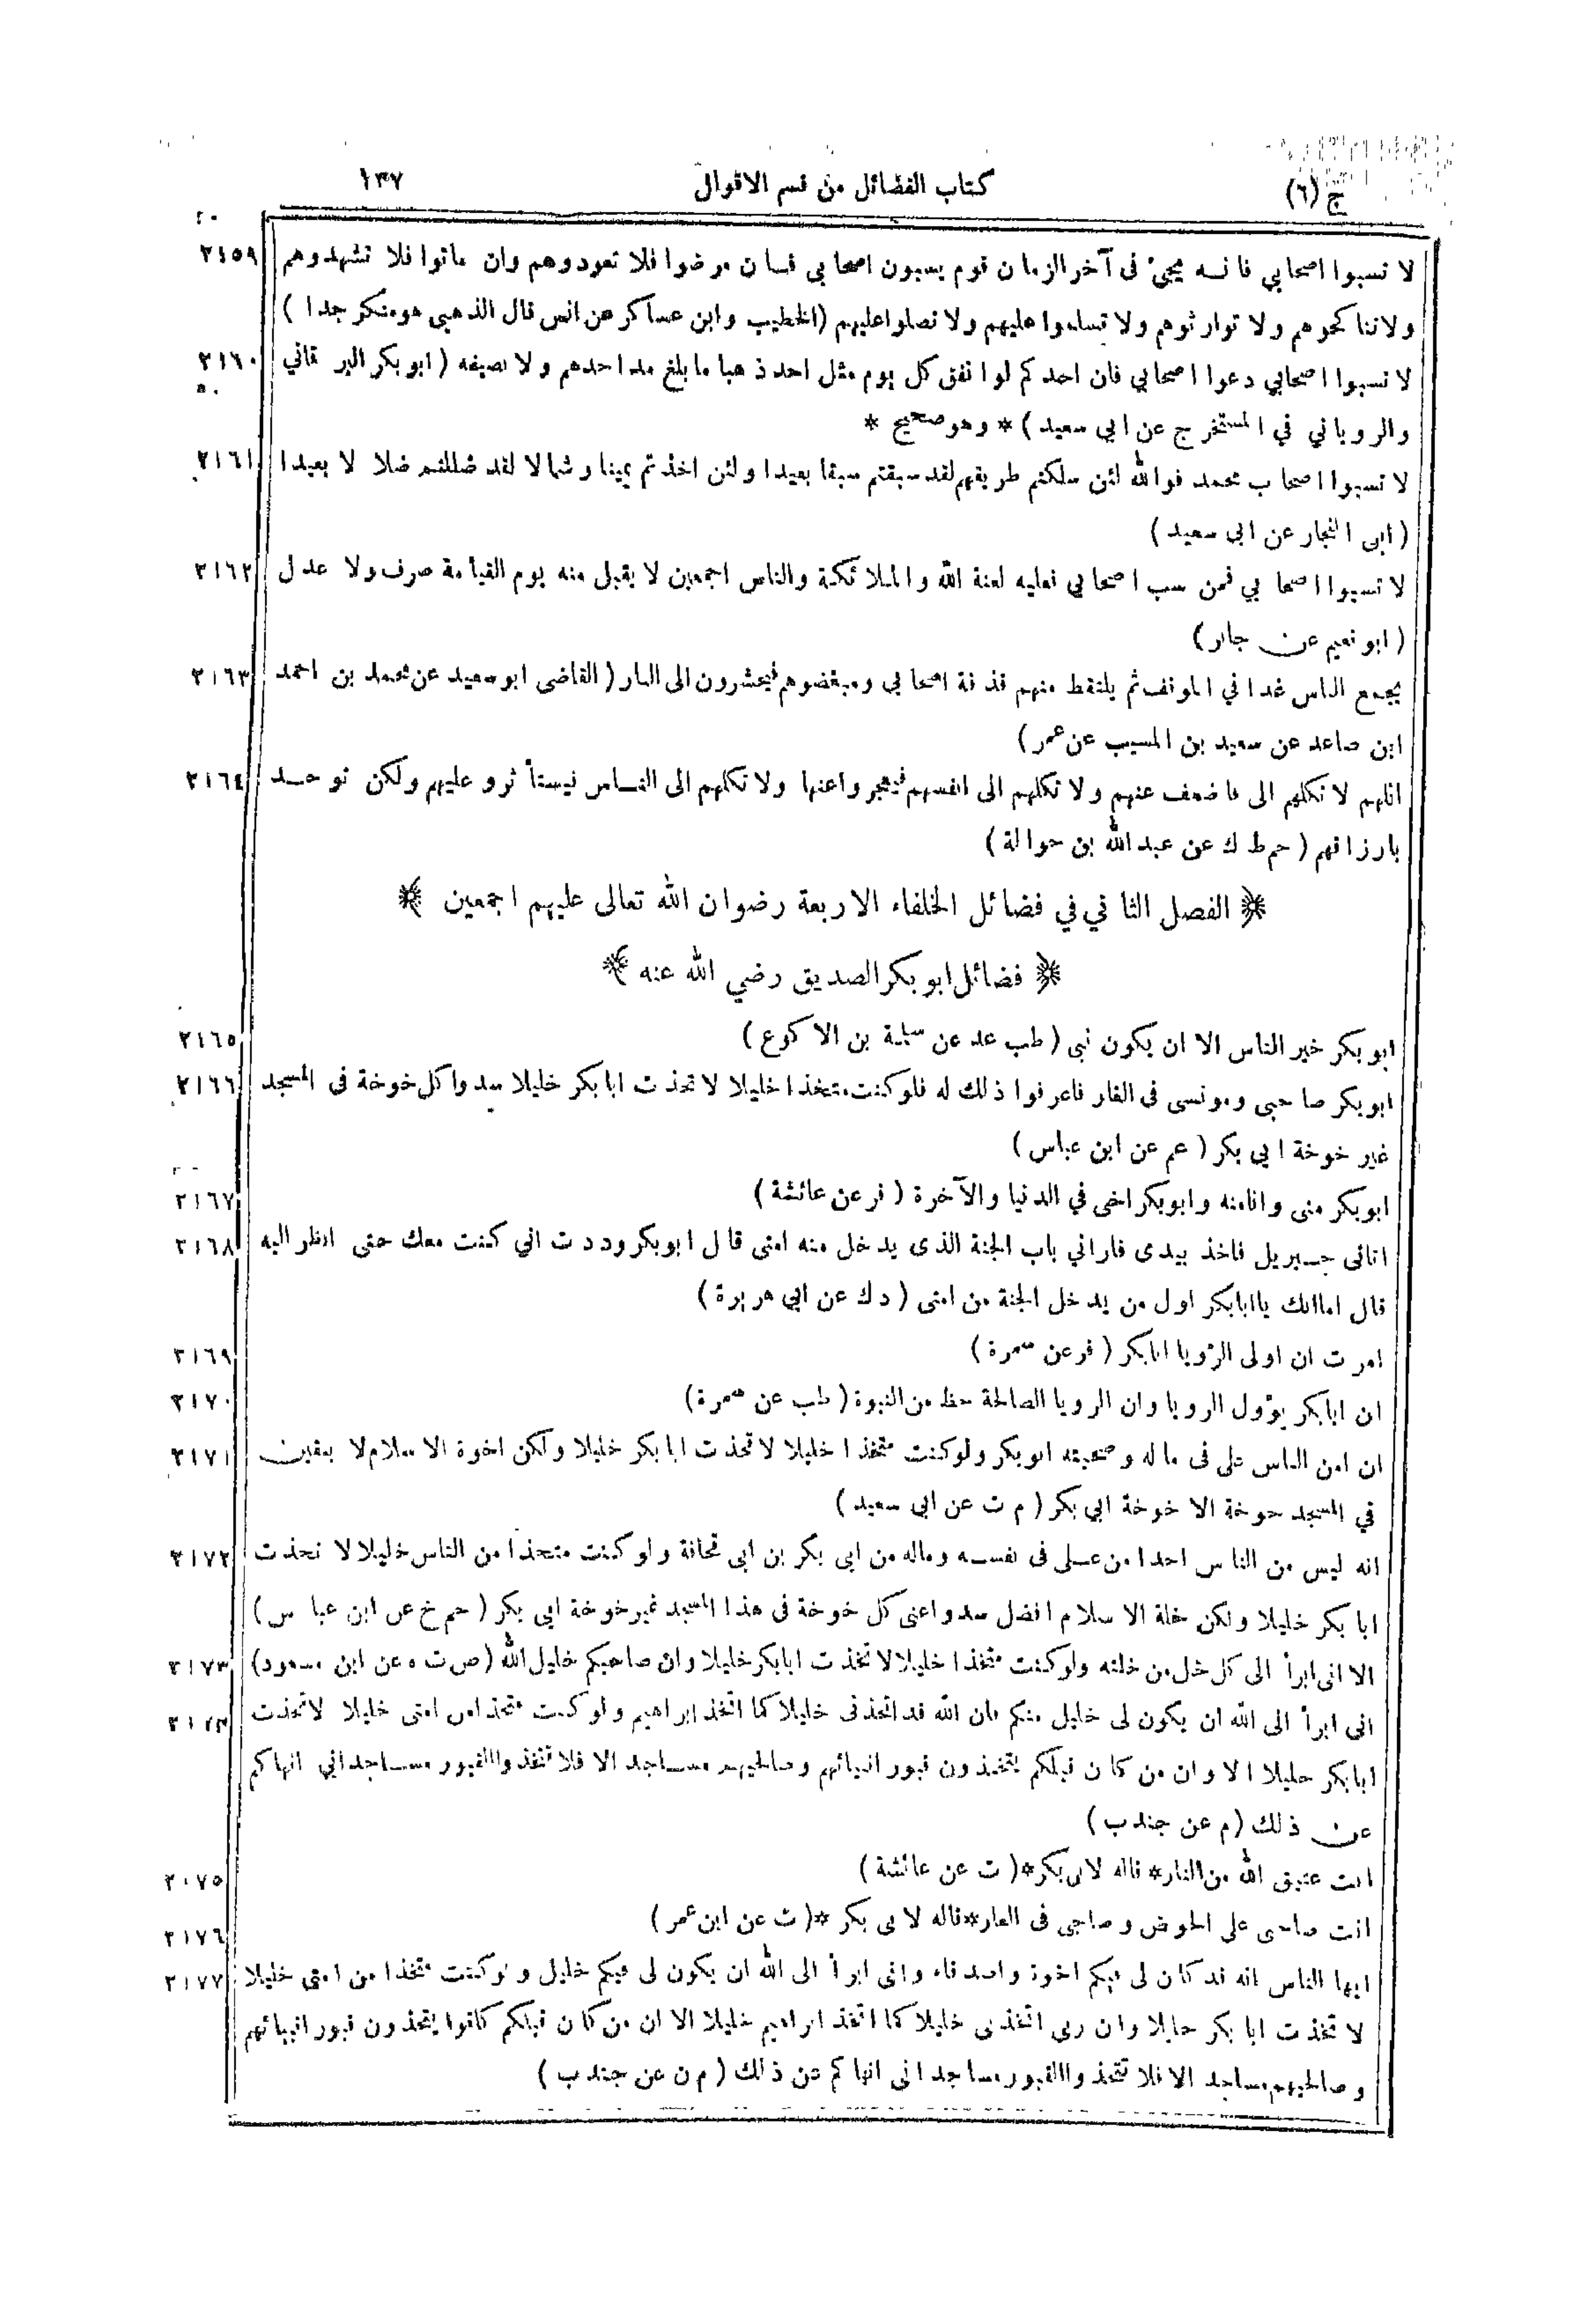 ج (٦)
كتاب الفضائل من قسم الاقوال
١٣٧
لا تسبوا اصحابي فانه يجئ فى آخر الزمان قوم يسبون اصحابي فان مرضوا فلا تعودوهم وان ماتوا فلا تشهدوهم ٢١٥٩
ولاتناكحوهم ولا توارثوهم ولا تسلموا عليهم ولا تصلوا عليهم (الخطيب وابن عساكر عن انس قال الذهبى هو منكر جدا)
لا تسبوا اصحابي دعوا اصحابي فان احدكم لو انفق كل يوم مثل احد ذهبا ما بلغ مد احدهم ولا نصيفه (ابو بكر البرقاني ٢١٦٠
والروياني في المستخرج عن ابي سعيد) * وهو صحيح *
لا تسبوا اصحاب محمد فوالله لئن سلكتم طريقهم لقد سبقتم سبقا بعيدا ولئن اخذتم يمينا وشمالا لقد ضللتم ضلا لا بعيدا ٢١٦١
(ابى النجار عن ابى سعيد)
لا تسبوا اصحابي فمن سب اصحابي فعليه لعنة الله والملائكة والناس اجمعين لا يقبل منه يوم القيامة صرف ولا عدل ٢١٦٢
(ابو نعيم عن جابر)
يجمع الناس غدا في الموقف ثم يلتقط منهم قذفة اصحابي ومبغضوهم فيحشرون الى النار (القاضى ابو سعيد عن محمد بن احمد ٢١٦٣
ابن صاعد عن سعيد بن المسيب عن عمر)
اللهم لا تكلهم الى فاضعف عنهم ولا تكلهم الى انفسهم فيعجزوا عنها ولا تكلهم الى الناس فيستأثروا عليهم ولكن توحد ٢١٦٤
بارزاقهم (حم ط ك عن عبد الله بن حوالة)
﴿ الفصل الثاني في فضائل الخلفاء الاربعة رضوان الله تعالى عليهم اجمعين ﴾
﴿ فضائل ابو بكر الصديق رضي الله عنه ﴾
ابو بكر خير الناس الا ان يكون نبى (طب عد عن سلمة بن الاكوع) ٢١٦٥
ابو بكر صاحبى ومونسى فى الغار فاعرفوا ذلك له فلو كنت متخذا خليلا لاتخذت ابا بكر خليلا سدوا كل خوخة فى المسجد ٢١٦٦
غير خوخة ابي بكر (عم عن ابن عباس)
ابو بكر منى وانا منه وابو بكر اخى في الدنيا والآخرة (فر عن عائشة) ٢١٦٧
اتانى جبريل فاخذ بيدى فاراني باب الجنة الذى يدخل منه امتى قال ابو بكر وددت اني كنت معك حتى انظر اليه ٢١٦٨
قال اما انك يا ابا بكر اول من يدخل الجنة من امتى (د ك عن ابي هريرة)
امرت ان اولى الرؤيا ابا بكر (فر عن سمرة) ٢١٦٩
ان ابا بكر يؤول الرويا وان الرويا الصالحة حظ من النبوة (طب عن سمرة) ٢١٧٠
ان امن الناس على فى ماله وصحبته ابو بكر ولو كنت متخذا خليلا لاتخذت ابا بكر خليلا ولكن اخوة الاسلام لا يبقين ٢١٧١
في المسجد خوخة الا خوخة ابي بكر (م ت عن ابى سعيد)
انه ليس من الناس احدا من على فى نفسه وماله من ابى بكر بن ابى قحافة ولو كنت متخذا من الناس خليلا لاتخذت ٢١٧٢
ابا بكر خليلا ولكن خلة الاسلام افضل سدوا عنى كل خوخة فى هذا المسجد غير خوخة ابي بكر (حم خ عن ابن عباس)
الا انى ابرأ الى كل خل من خلته ولو كنت متخذا خليلا لاتخذت ابا بكر خليلا وان صاحبكم خليل الله (ص ت ه عن ابن مسعود) ٢١٧٣
انى ابرأ الى الله ان يكون لى خليل منكم فان الله قد اتخذنى خليلا كما اتخذ ابراهيم ولو كنت متخذا من امتى خليلا لاتخذت ٢١٧٣
ابا بكر خليلا الا وان من كان قبلكم يتخذون قبور انبيائهم وصالحيهم مساجد الا فلا تتخذوا القبور مساجد اني انهاكم
عن ذلك (م عن جندب)
انت عتيق الله من النار* قاله لابى بكر* (ت عن عائشة) ٢٠٧٥
انت صاحبى على الحوض وصاحبى فى الغار* قاله لابى بكر * (ت عن ابن عمر) ٢١٧٦
ايها الناس انه قد كان لى فيكم اخوة واصدقاء وانى ابرأ الى الله ان يكون لى فيكم خليل ولو كنت متخذا من امتى خليلا ٢١٧٧
لاتخذت ابا بكر خليلا وان ربى اتخذنى خليلا كما اتخذ ابراهيم خليلا الا ان من كان قبلكم كانوا يتخذون قبور انبيائهم
وصالحيهم مساجد الا فلا تتخذوا القبور مساجد انى انهاكم عن ذلك (م ن عن جندب)